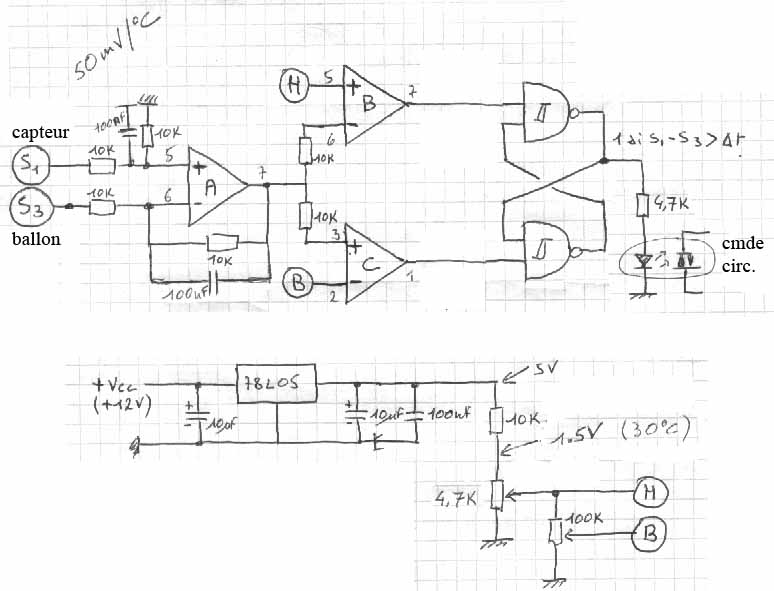 50mV/°C
capteur
S1
10K
100nF
10K
5
6
A
7
S3
10K
ballon
10K
100nF
H
5
+
6
-
B
7
10K
10K
3
+
2
-
C
1
B
1 si S1-S3 > Δt
4,7K
cmde
circ.
+Vcc
(+12V)
78L05
5V
+
-
10µF
+
-
10µF
100nF
10K
1.5V (30°C)
4,7K
100K
H
B